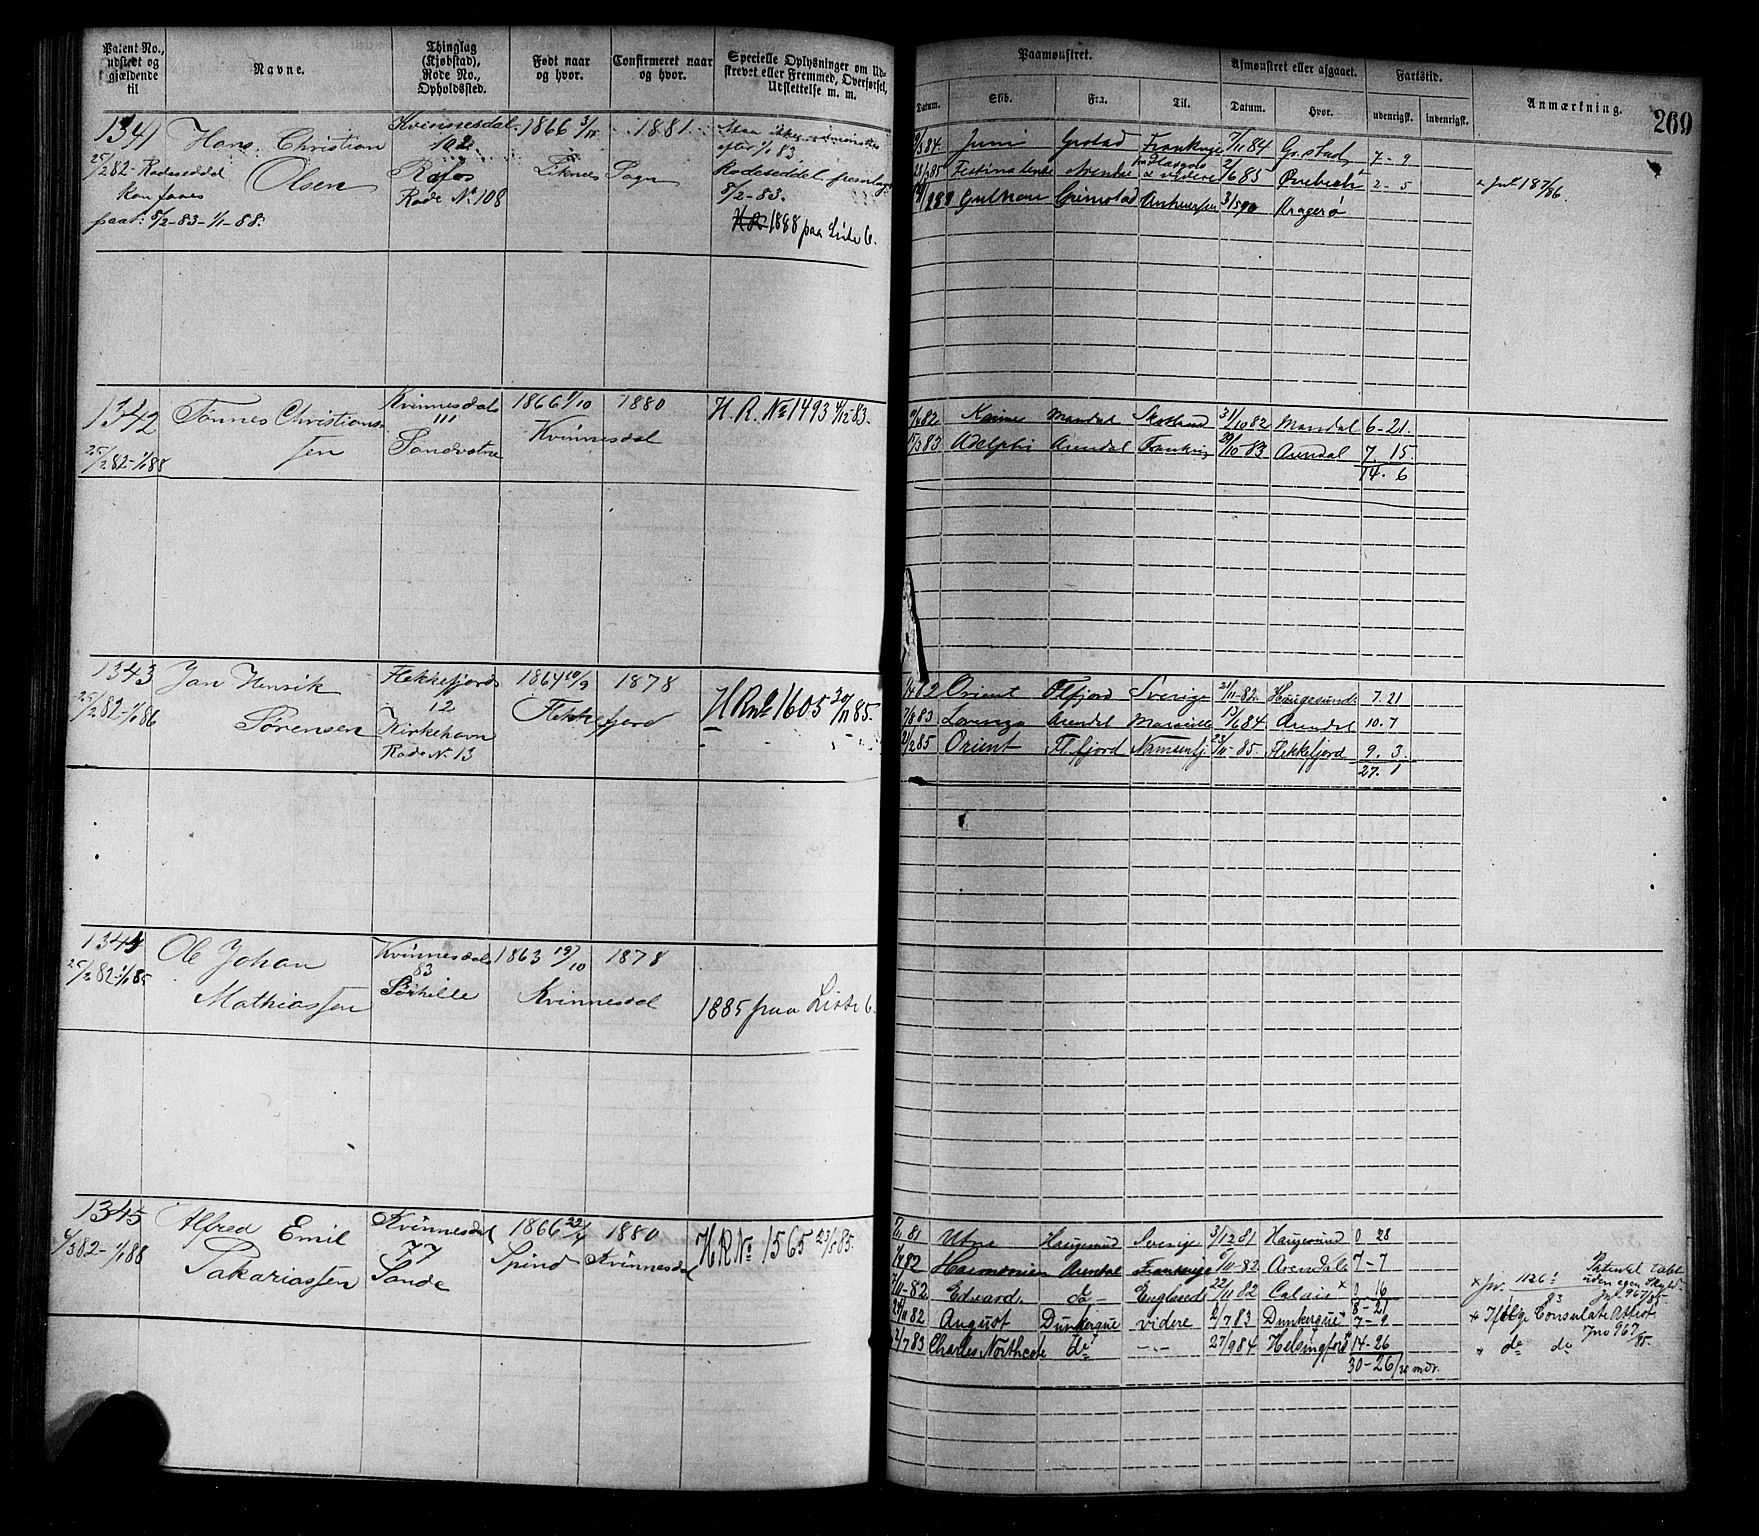 Patent No., udstedt og gjældende til
Navne.
Thinglag (Kjøbstad), Rode No., Opholdssted.
Født naar og hvor.
Confirmeret naar og hvor.
Specielle Oplysninger om Udstrevet eller Fremmed, Overførsel, Udslettelse m. m.
Paamønstret.
Afmønstret eller afgaaet.
Fartstid.
Anmærkning.
269
Datum. Skib. Fra. Til. Datum. Hvor. udenrigst. indenrigst.
1341 Hans Christian Olsen
25/2 82 - Rodeseddel
Kan faaes
paat: 8/2-83-1/1-88.
Kvinnesdal
102
Rafos
Rode No 108
1866 3/11
Liknes Sogn
1881
efter 1/1 83
Rodeseddel fremlagt
8/2-83.
1888 paa Liste 6.
84 Juni Grstad Frankrige 7/11 84 Grstad 7-9
85 Festina lente Arendal Glasgow & videre 2/6 85 2-5
Gulnare Grimstad Antwerpen 3/5 90 Kragerø
1342 Tønnes Christianssen
25/2 82-1/1 88
Kvinnesdal
111
Sandvatne
1866 1/10
Kvinnesdal
1880
H. R. No 1493 4/12 83.
82 Karine Mandal Skotland 31/10 82 Mandal 6-21.
83 Adelphi Arendal Frankrig 29/10 83 Arendal 7. 15.
14. 6
1343 Jan Henrik Sørensen
25/2 82-1/1 86
Flekkefjords
12
Kirkehavn
Rode No. 13
1864 10/9
Flekkefjord
1878
H R No 1605 30/11 85.
82 Orient Flfjord Sverige 21/11-82. Haugesund 7.21
83 Lorenzo Arendal Marseille 17/6 84 Arendal 10.7
21/2 85 Orient Fl.fjord Namsenfj 23/11-85. Flekkefjord 9. 3.
27. 1
1344 Ole Johan Mathiassen
25/2 82-1/1 85
Kvinnesdal
83
1863 19/10
Kvinnesdal
1878
1885 paa Liste 6.
1345 Alfred Emil Sakariassen
6/3 82-1/1 88
Kvinnesdal
77
Sande
1866 22/4
Spind
1880
Kvinnesdal
H R No 1565 23/5 85.
81 Utne Haugesund Sverige 3/12 81 Haugesund 0 28
82 Harmonien Arendal Frankrige 6/11-82 Arendal 7-7
7/11-82 Edward do Engleand 22/11 82 Calais x 0 16
8-21
24/11 82 August Dunkerque videre 2/7 83 Dunkerque 7-9
2/7 83 Charles Northcote do 27/9 84 Helsingfors 14-26
30-26
Patentet tabt
uden egen Skyld
x Jvr. 1126/83
x Ifølge Consulats Attest
Jno 967/85
" do do